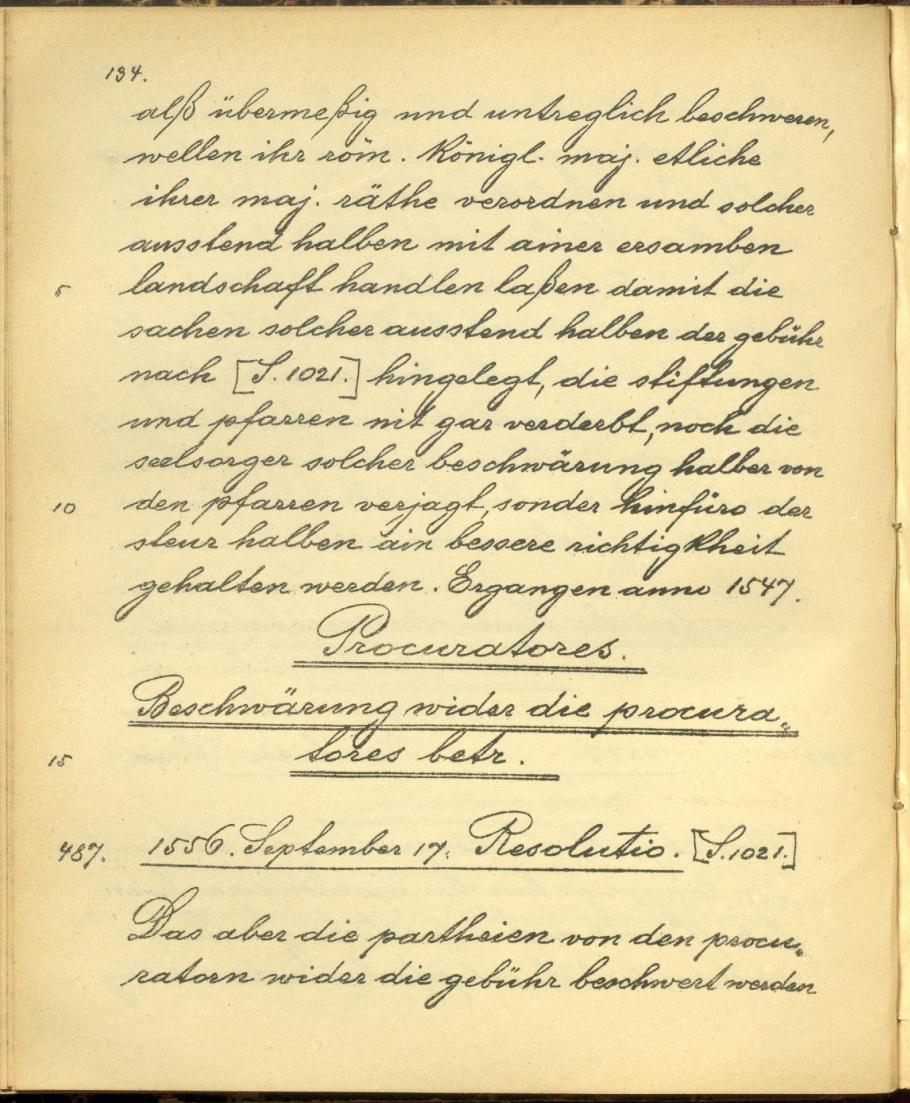 134.
alß übermeßig und untreglich beschweren,
wellen ihr röm. Königl. maj. etliche
ihrer maj. räthe verordnen und solcher
ausstend halben mit ainer ersamben
5 landschaft handlen laßen damit die
sachen solcher ausstend halben der gebühr
nach [S. 1021.] hingelegt, die stiftungen
und pfarren nit gar verderbt, noch die
seelsorger solcher beschwärung halber von
10 den pfarren verjagt, sonder hinfüro der
steur halben ain bessere richtigkheit
gehalten werden. Ergangen anno 1547.
Procuratores.
Beschwärung wider die procura„
15 tores betr.
487. 1556. September 17. Resolutio. [S. 1021.]
Das aber die partheien von den procu„
ratorn wider die gebühr beschwert werden